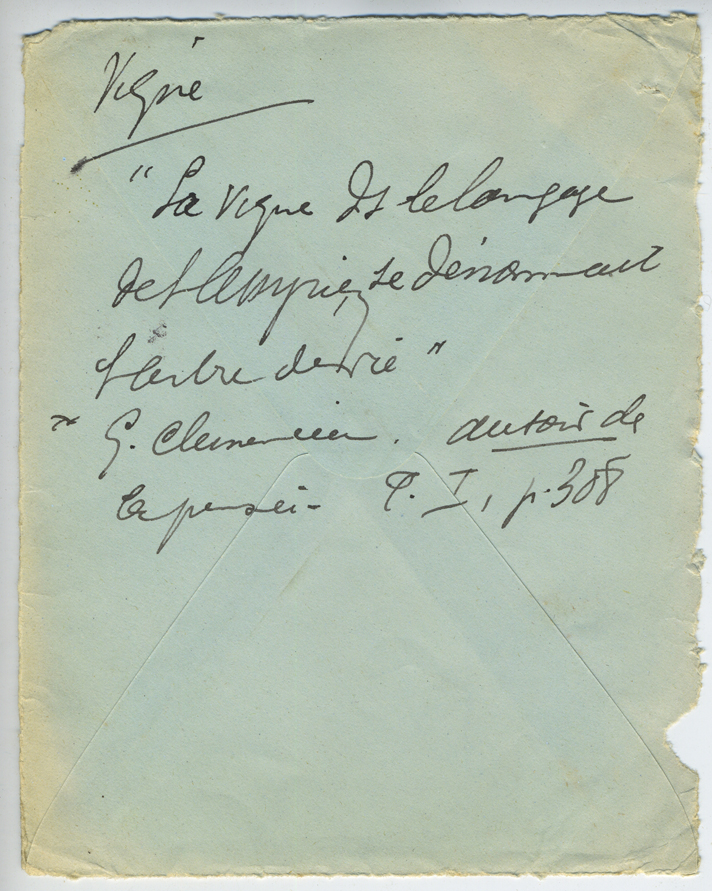 Vigne
"La vigne ds le langage
de l'Assyrie, se dénommait
l'arbre de vie"
G. Clemenceau. au soir de
la pensée T. I, p. 308